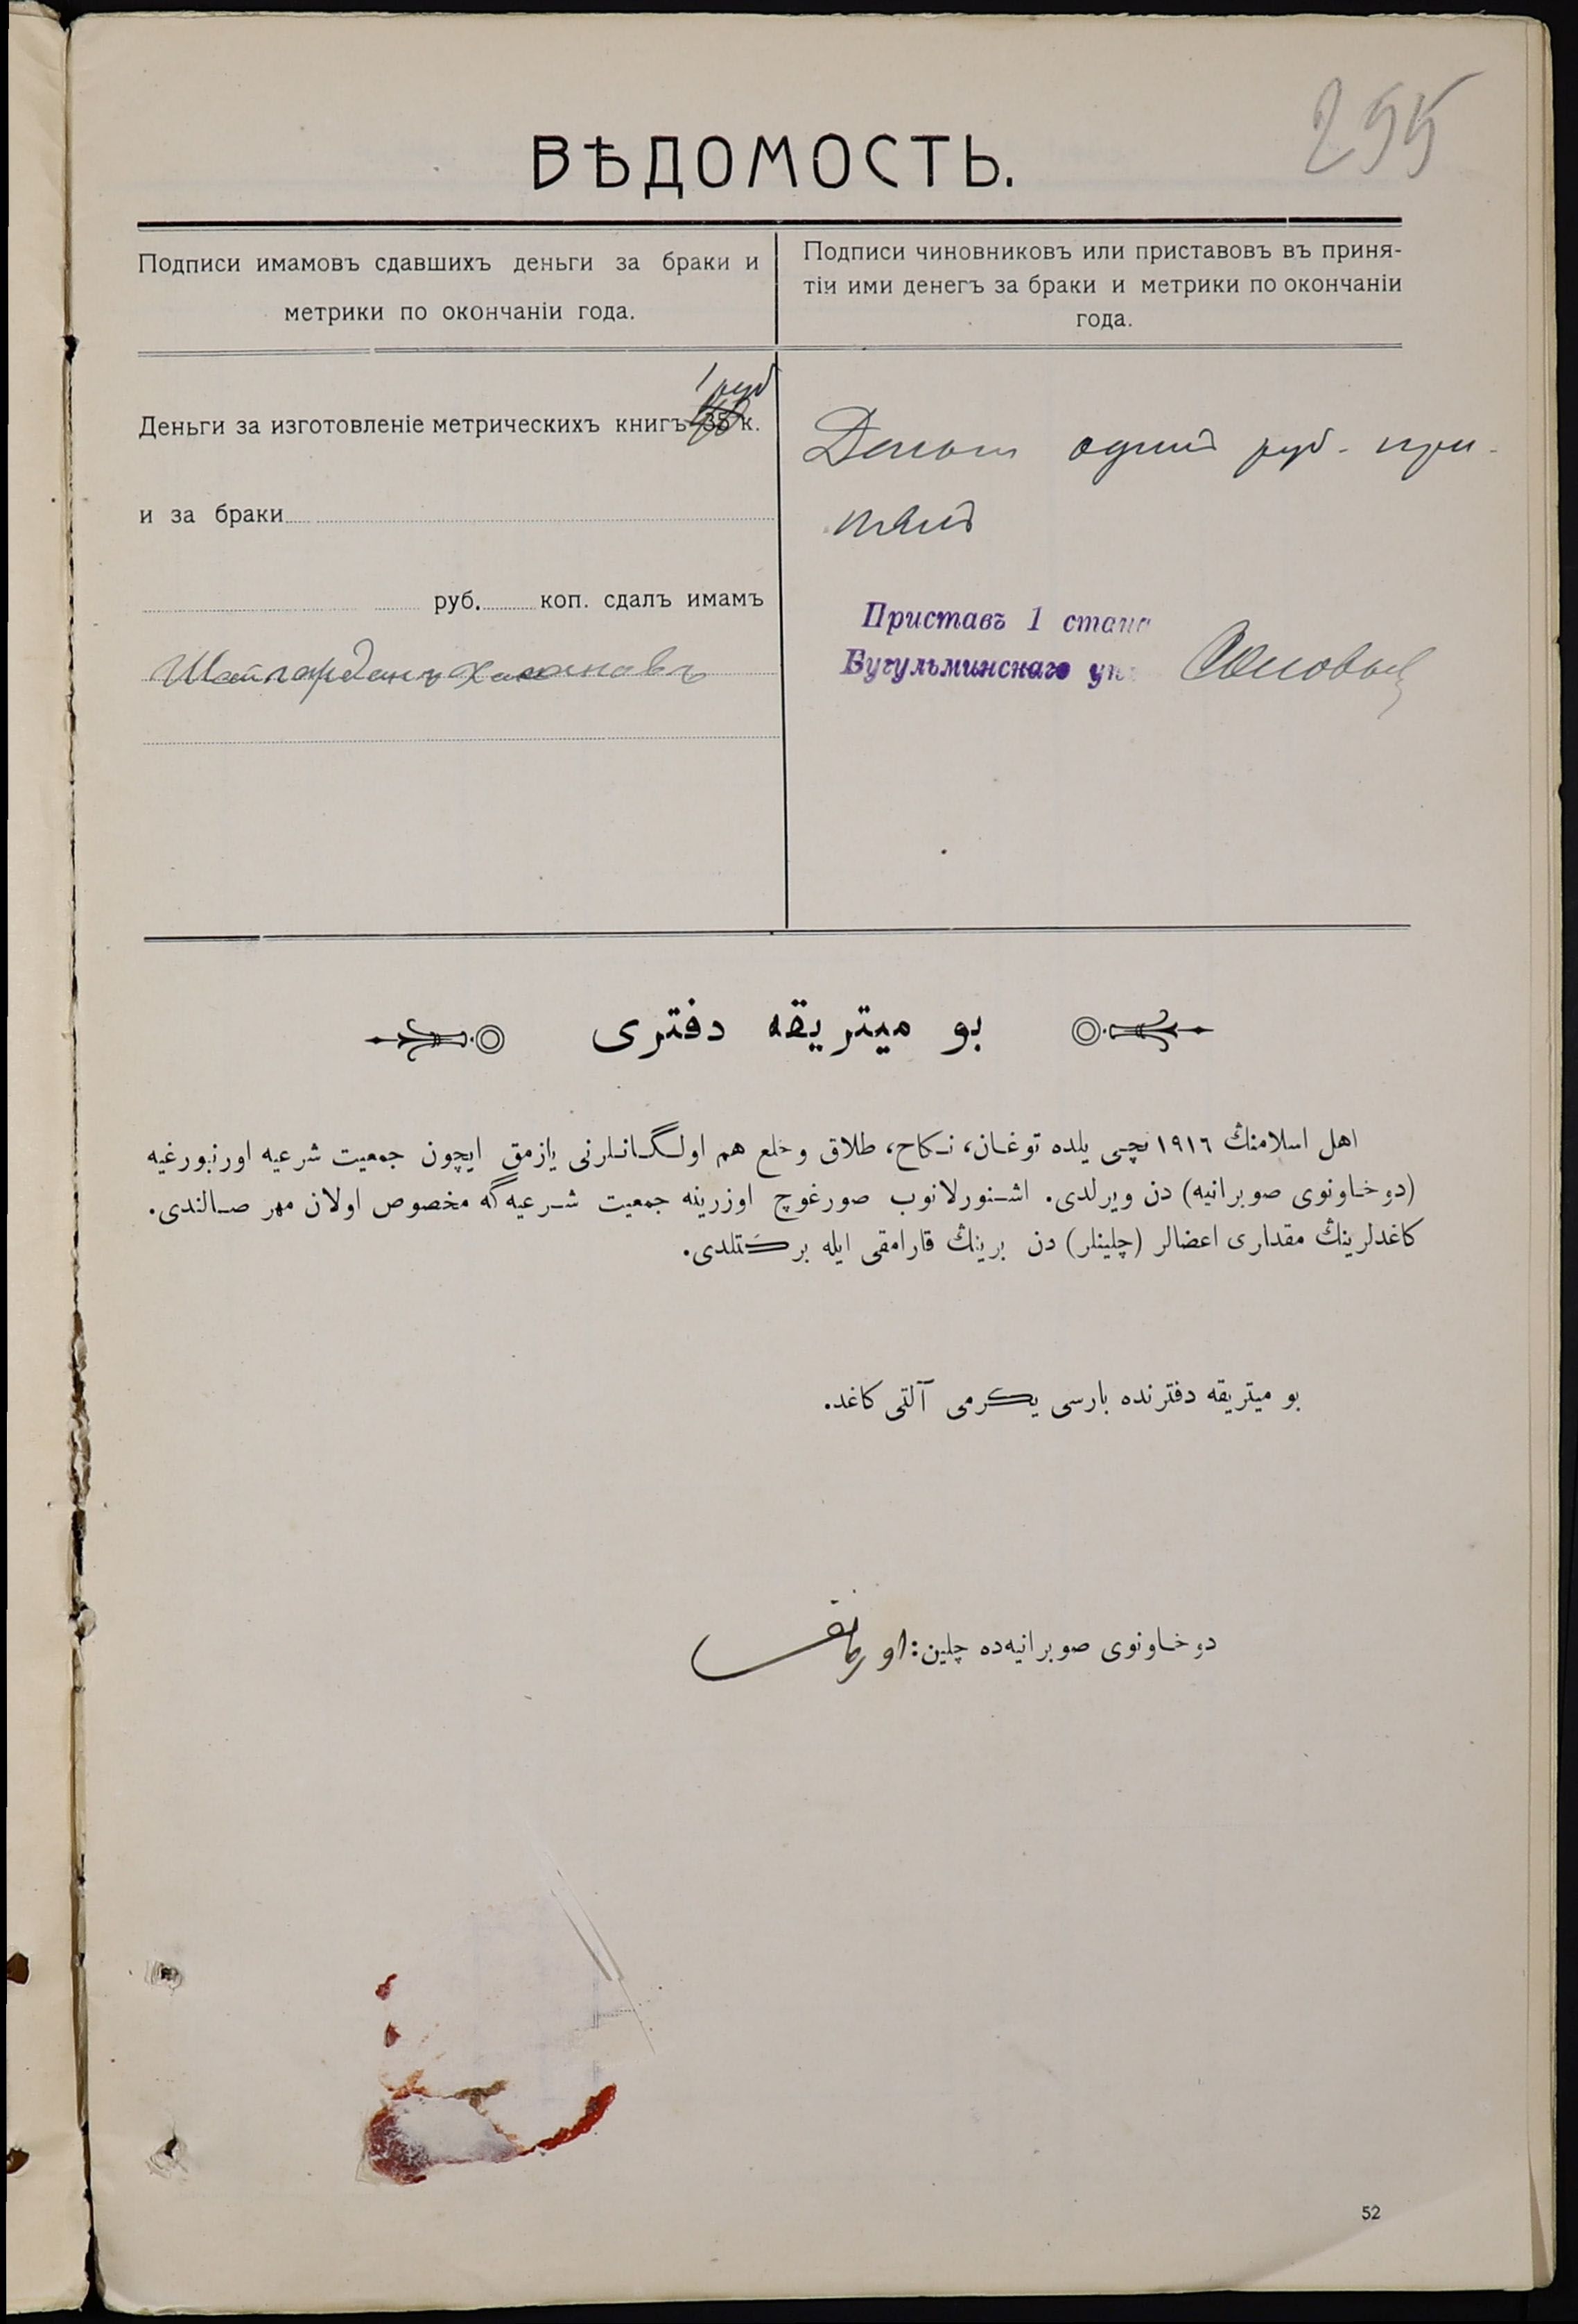 255
ВѢДОМОСТЬ.
Подписи имамовъ сдавшихъ деньги за браки и
метрики по окончаніи года.
Подписи чиновниковъ или приставовъ въ приня-
тіи ими денегъ за браки и метрики по окончаніи
года.
1 руб
Деньги за изготовленіе метрическихъ книгъ 35 к.
и за браки
руб. коп. сдалъ имамъ
Шайгарданъ
Деньги одинъ руб. при-
нялъ
Приставъ 1 стана
Бугульминскаго у
بو ميتريقه دفترى
اهل اسلامنڭ ١٩١٦ نچى يلده توغان، نكاح، طلاق وخلع هم اولگانلرنى يازمق ايچون جمعيت شرعيه اورنبورغيه
(دوخاونوى صوبرانيه) دن ويرلدى. اشنورلانوب صورغوچ اوزرينه جمعيت شرعيه گه مخصوص اولان مهر صالندى.
كاغدلرينڭ مقدارى اعضالر (چلينلر) دن برينڭ قارامقى ايله بركتلدى.
بو ميتريقه دفترنده بارسى يكرمى آلتى كاغد.
دوخاونوى صوبرانيه‌ده چلين:
52